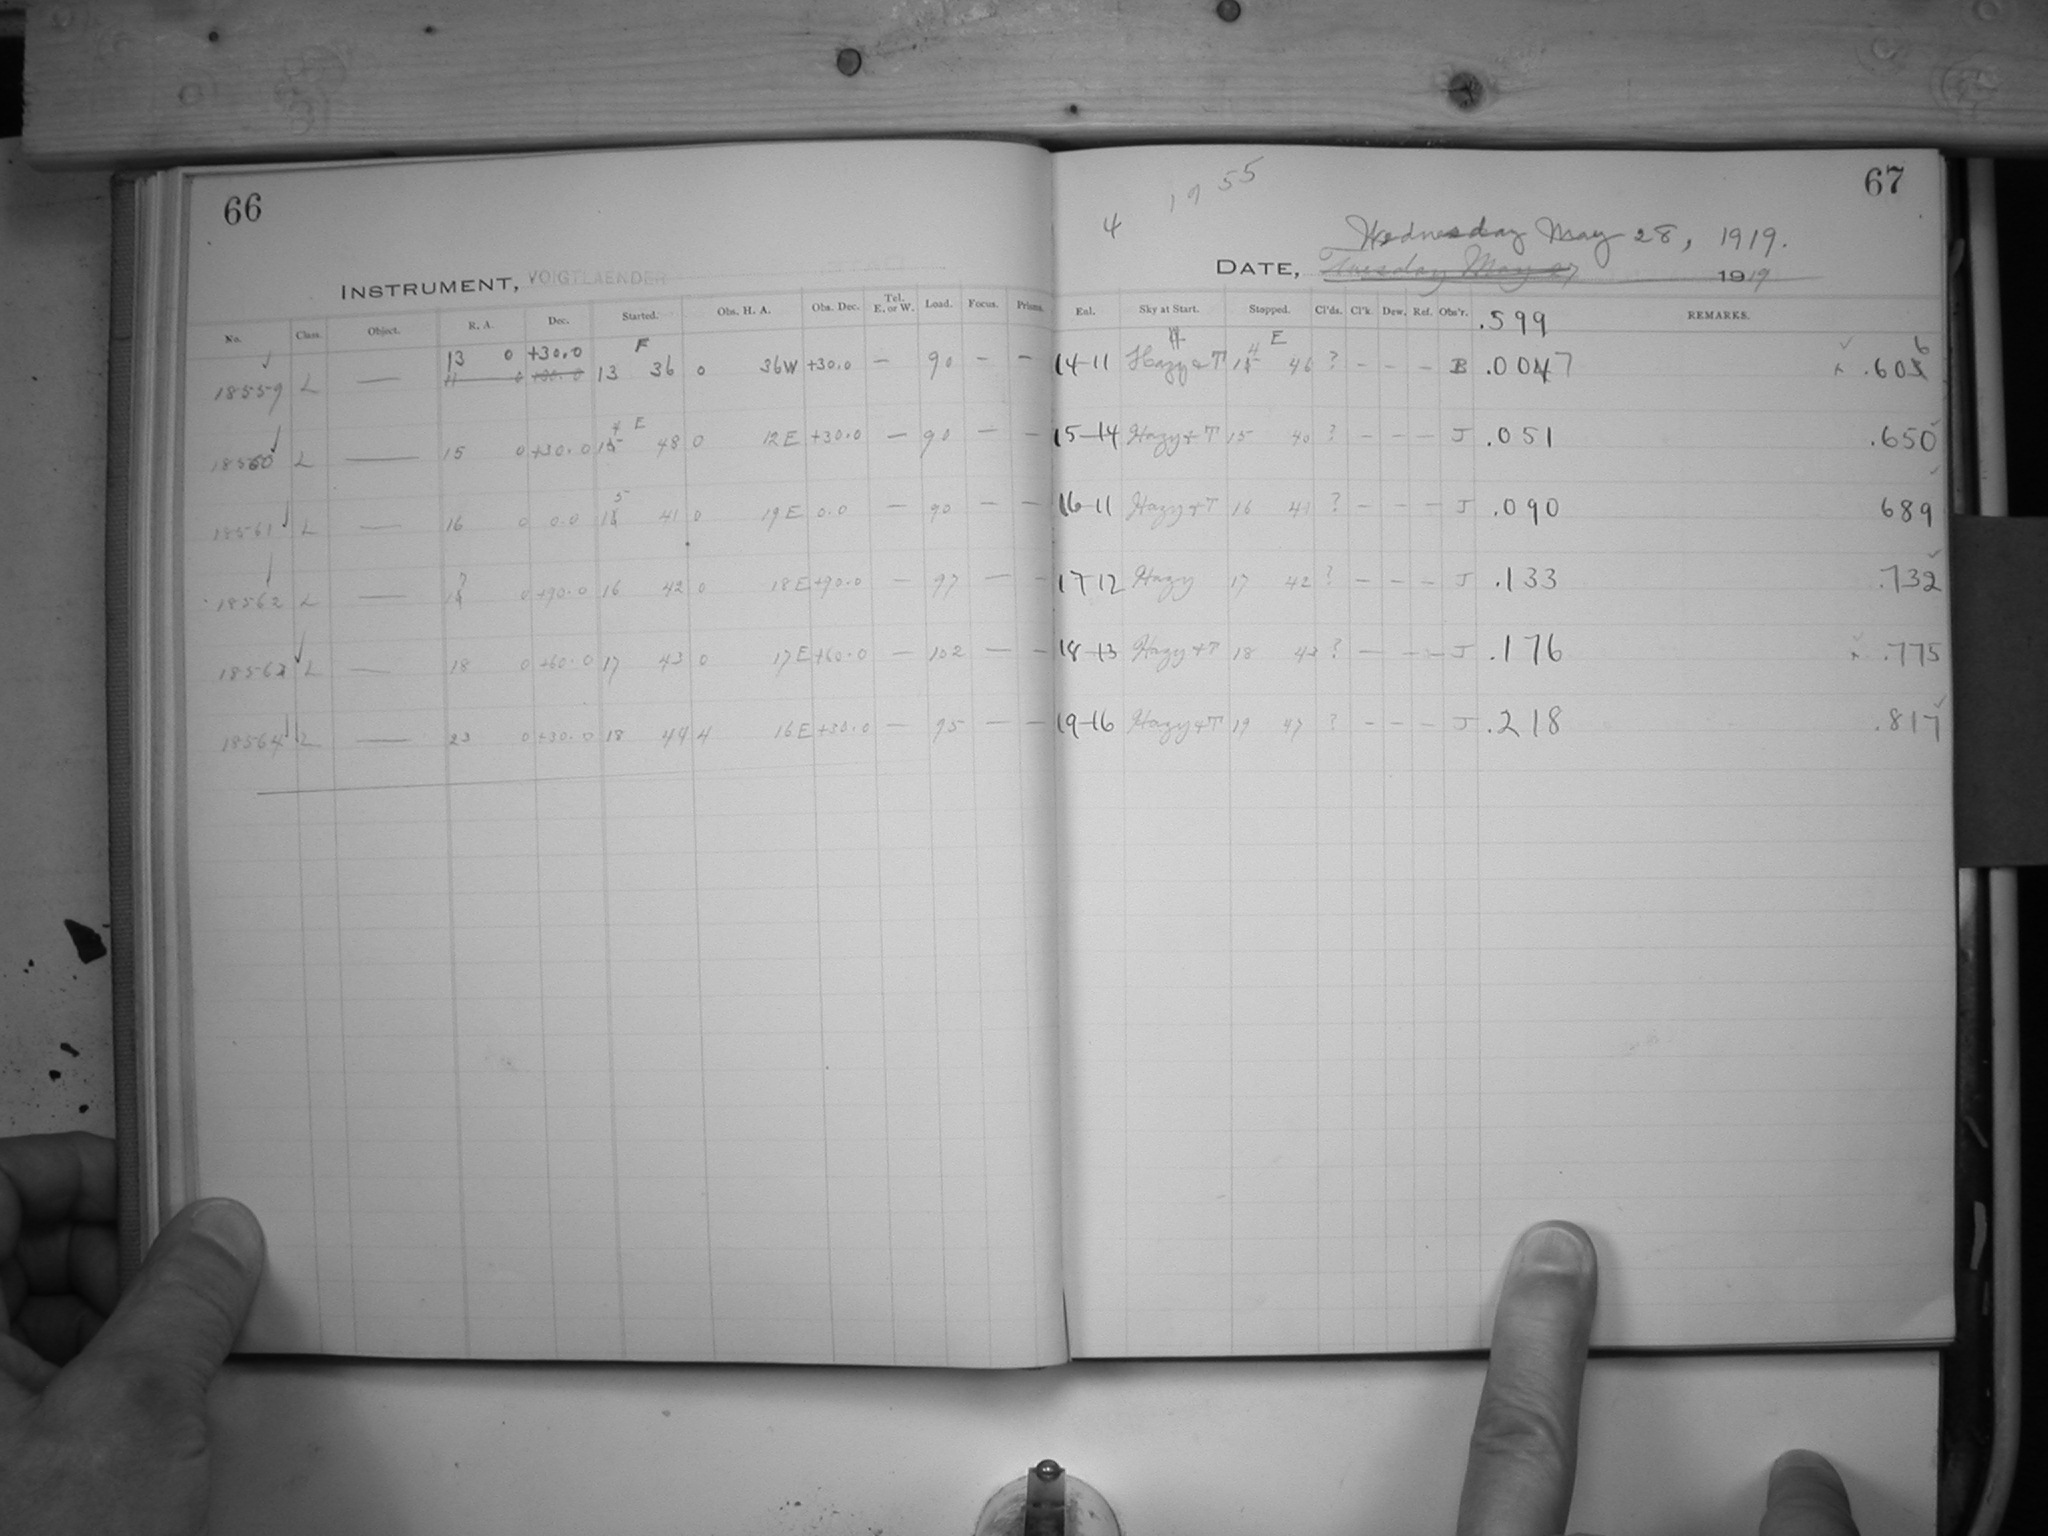 66
INSTRUMENT, VOIGTLAENDER
No. Class. Object. R. A. Dec. Started. Obs. H. A. Obs. Dec. Tel. E. or W. Load. Focus. Prisms.
13 0 +30.0 F
18559 L — 11 0 +30.0 13 36 0 36W +30.0 — 90 — —
4 E
18560 L — 15 0 +30.0 15 48 0 12E +30.0 — 90 — —
5
18561 L — 16 0 0.0 41 0 19E 0.0 — 90 — —
18562 L — 0 +90.0 16 42 0 18E +90.0 — 97 — —
18563 L — 18 0 +60.0 17 43 0 17E +60.0 — 102 — —
18564 L — 23 0 +30.0 18 44 4 16E +30.0 — 95 — —
67
1955
4
Wednesday May 28, 1919.
DATE, Tuesday May 27 1919
Enl. Sky at Start. Stopped. Cl'ds. Cl'k. Dew. Ref. Obs'r. .599 REMARKS.
H 4 E 6
14-11 Hazy + T 15 46 ? - - - B .0047 .603
15-14 Hazy + T 15 40 ? - - - J .051 .650
16-11 Hazy + T 16 41 ? - - - J .090 689
17-12 Hazy 17 42 ? - - - J .133 .732
18-13 Hazy + T 18 43 ? - - - J .176 .775
19-16 Hazy + T 19 47 ? - - - J .218 .817